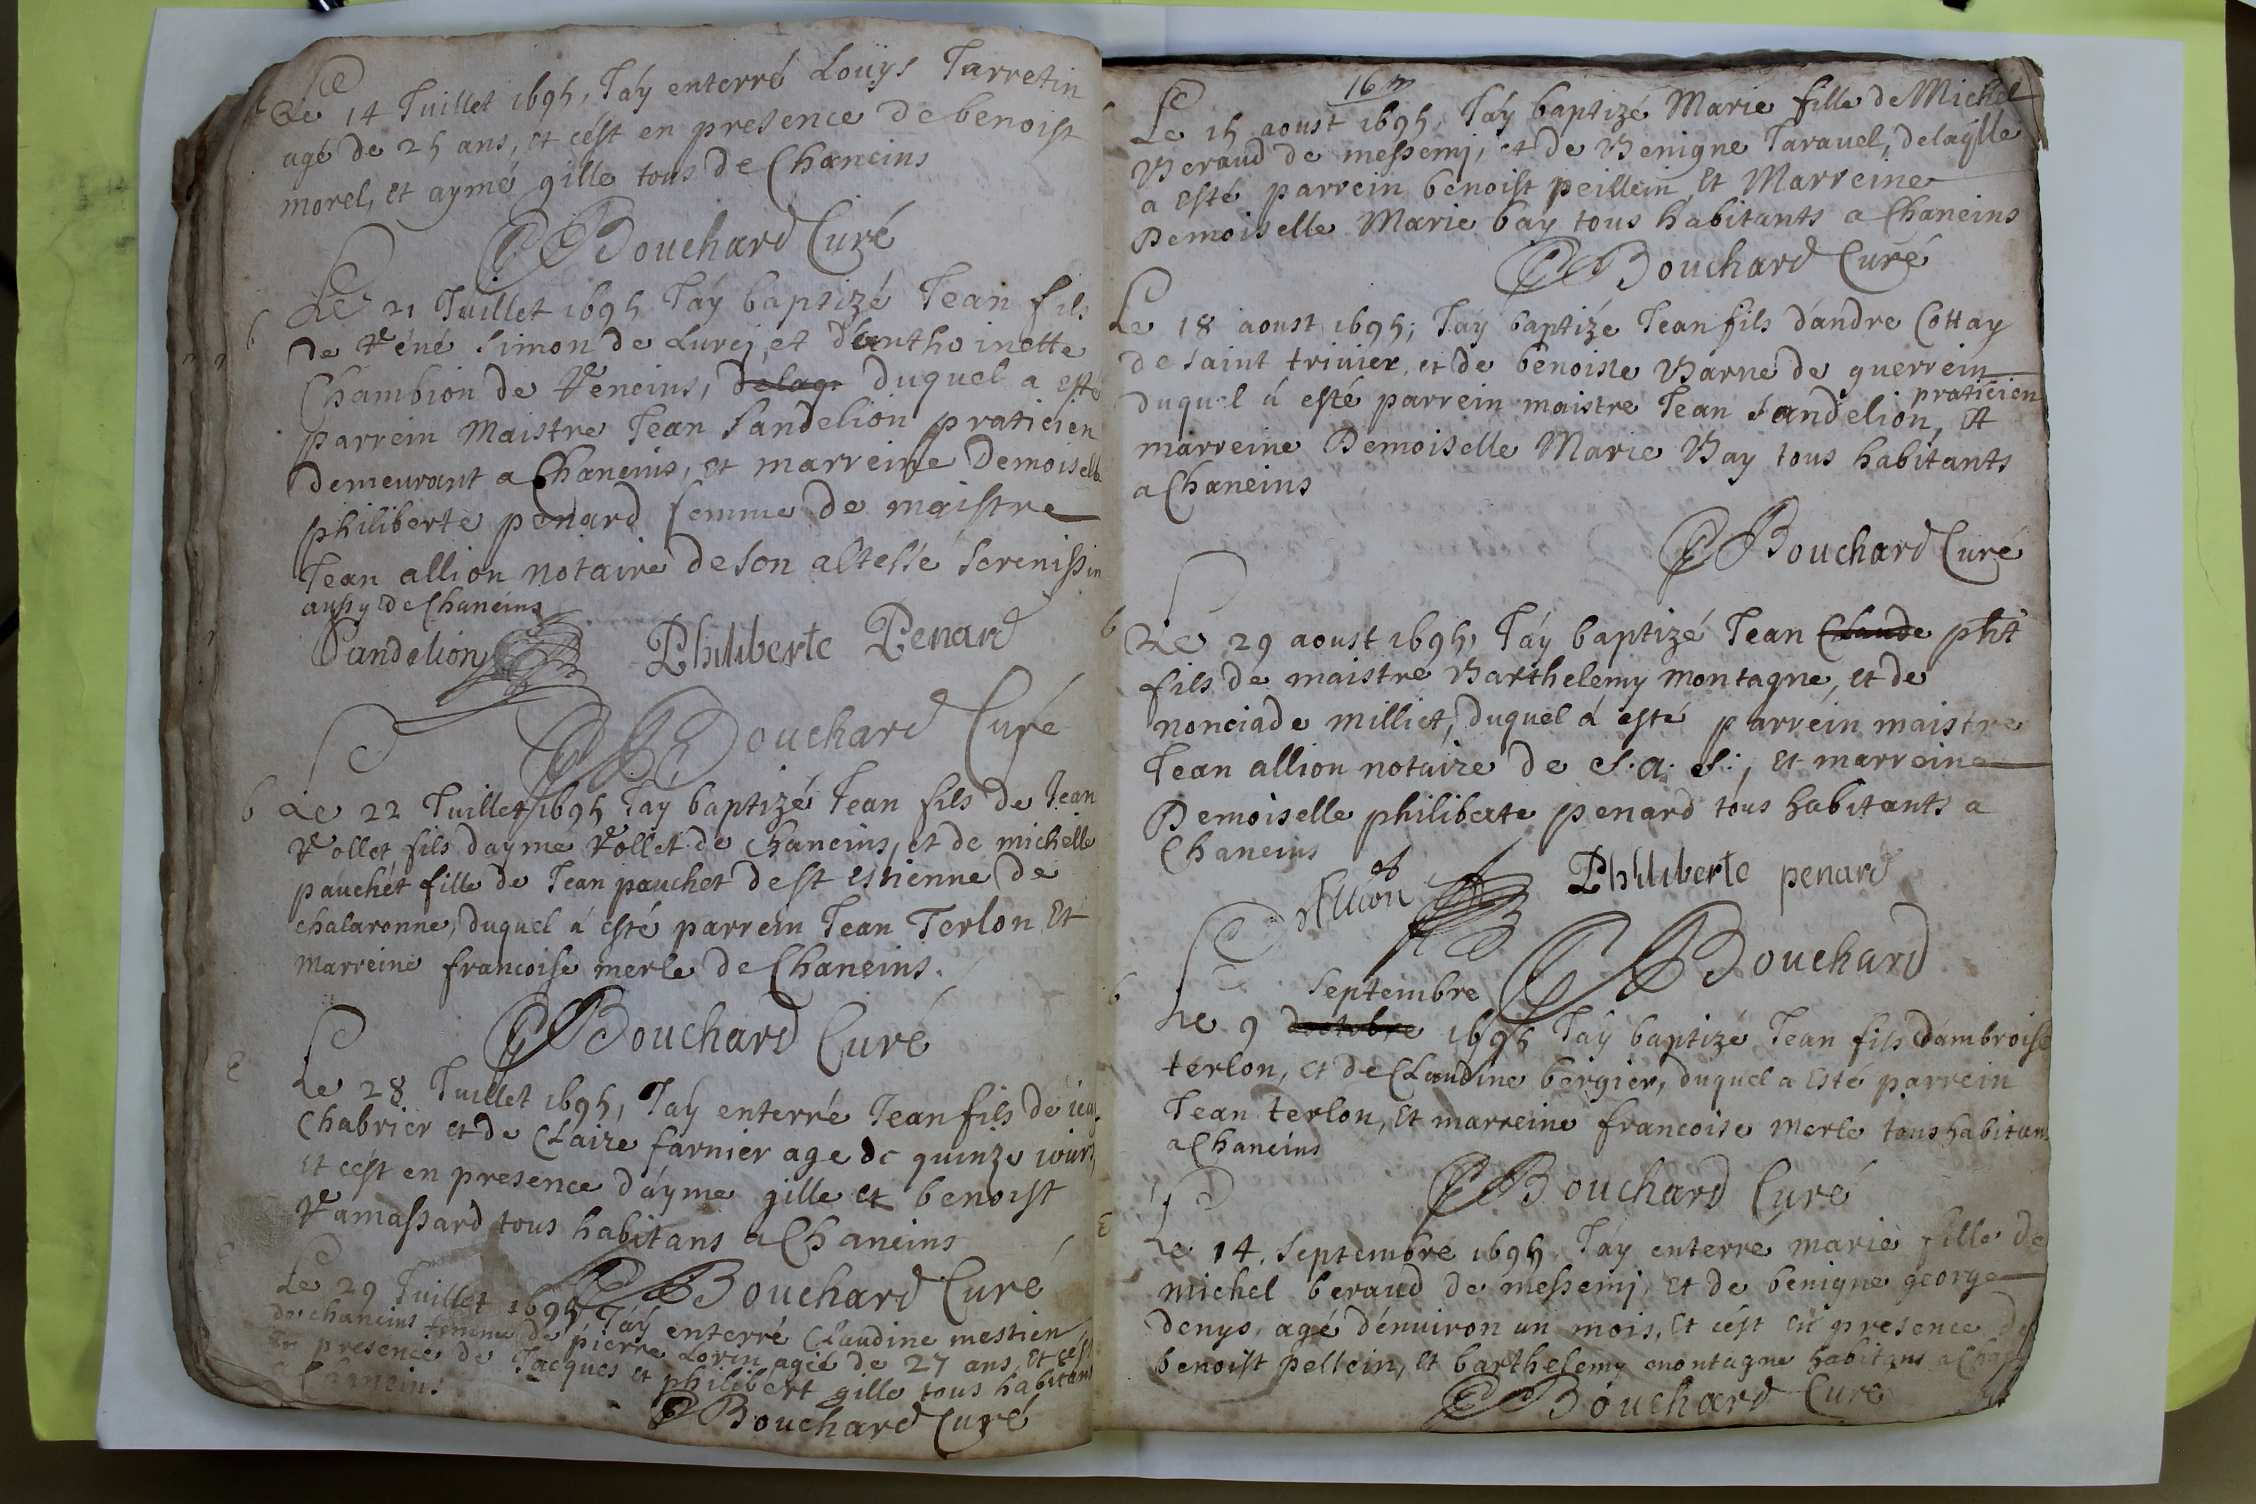 Le 14 Juillet 1695, J'áy enterré Loüys Jarretin
agé de 25 ans, et cést en presence de benoist
morel, et aymé gille tous de Chaneins
Bouchard Curé
b Le 21 Juillet 1695 J'áy baptizé Jean fils
de Réné Simon de Lurcj, et d'Anthoinette
Chambion de Reneins, delaq. duquel a esté
parrein Maistre Jean Sandelion praticien
demeurant a Chaneins, et marreine Demoiselle
philiberte penard femme de maistre
Jean allion notaire de son altesse Serenissim
aussy de Chaneins
Sandelion Philiberte Penard
Bouchard Curé
b Le 22 Juillet 1695 J'ay baptizé Jean fils de Jean
Rollet, fils d'aymé Rollet de Chaneins, et de michelle
pauchet fille de Jean pauchet de st estienne de
chalaronne, duquel á esté parrein Jean Terlon Et
marreine francoise merle de Chaneins.
Bouchard Curé
E Le 28 Juillet 1695, J'aÿ enterré Jean fils de jean
Chabrier et de Claire farnier age de quinze iours,
Et cést en presence d'áyme gille et benoist
Ramassard tous habitans a Chaneins
Bouchard Curé
Le 29 Juillet 1695 J'áy enterré Claudine mestien
de chaneins femme de pierre Lorin agée de 27 ans, Et cést
en presence de Jacques et philibert gille tous habitans
a Chaneins
Bouchard Curé
16m
Le 15 aoust 1695, J'áy baptizé Marie fille de Michel
Beraud de messemj, et de Benigne Taravel, delaqlle
a esté parrein benoist peillein Et Marreine
Demoiselle Marie bay tous habitants a Chaneins
Bouchard Curé
Le 18 aoust 1695; J'áy baptizé Jean fils d'andre Cottay
de saint trivier, et de benoiste Barne de guerrein
duquel á esté parrein maistre Jean Sandelion, praticien Et
marreine Demoiselle Marie Bay tous habitants
a Chaneins
Bouchard Curé
b Le 29 aoust 1695, J'áy baptizé Jean Claude phit
fils de maistre Barthelemy montagne, et de
nonciade milliet, duquel á esté parrein maistre
Jean allion notaire de S. a. S., et marreine
Demoiselle philiberte penard tous habitants a
Chaneins
Allion Philiberte penard
Bouchard
b Le 9 doctobre Septembre 1695 J'áy baptizé Jean fils d'ambroise
terlon, et de Claudine bergier, duquel a esté parrein
Jean terlon, Et marreine francoise merle tous habitans
a Chaneins
Bouchard Curé
E Le 14. Septembre 1695 J'áy enterre marie fille de
michel beraud de messemj, et de benigne george
denys, agé dénuiron un mois, Et cést en presence de
benoist pellein, Et barthelemy montagne habitans a Chan
Bouchard Curé